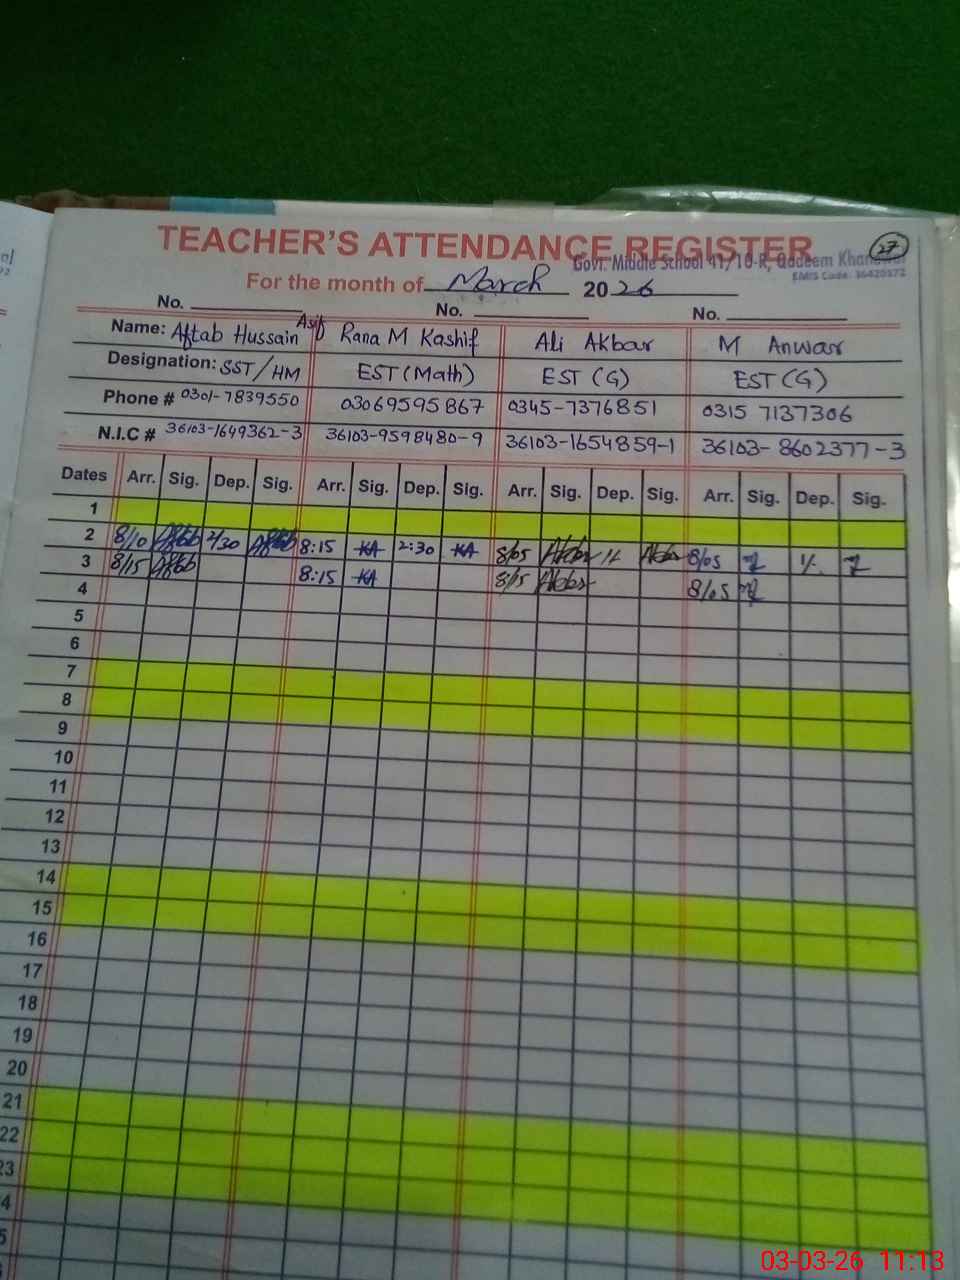 TEACHER'S ATTENDANCE REGISTER
27
Govt. Middle School 41/10-R, Qadeem Khanewal
EMIS Code: 36420372
For the month of March 2026
No. No. No.
Name: Aftab Hussain Asif Rana M Kashif Ali Akbar M Anwar
Designation: SST/HM EST (Math) EST (G) EST (G)
Phone # 0301-7839550 03069595867 0345-7376851 0315 7137306
N.I.C # 36103-1649362-3 36103-9598480-9 36103-1654859-1 36103-8602377-3
Dates Arr. Sig. Dep. Sig. Arr. Sig. Dep. Sig. Arr. Sig. Dep. Sig. Arr. Sig. Dep. Sig.
1
2 8/10 Aftab 2/30 Aftab 8:15 KA 2:30 KA 8/05 Akbar Akbar 8/05
3 8/15 Aftab 8:15 KA 8/15 Akbar 8/05
4
5
6
7
8
9
10
11
12
13
14
15
16
17
18
19
20
21
22
23
4
5
03-03-26 11:13